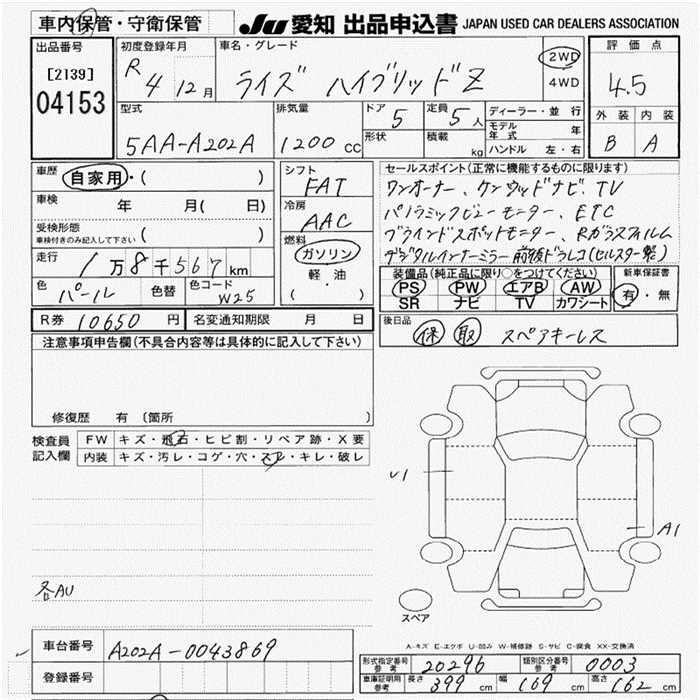 車内保管・守衛保管
JU 愛知 出品申込書 JAPAN USED CAR DEALERS ASSOCIATION
出品番号
[2139]
04153
初度登録年月
R 4 12 月
車名・グレード
ライズ ハイブリッドZ
2WD
4WD
評価点
4.5
外装 内装
B A
型式
5AA-A202A
排気量
1200 CC
ドア 5
形状
定員 5 人
積載 kg
ディーラー・並行
モデル年式 年
ハンドル 左・右
車歴 自家用・( )
車検 年 月( 日)
受検形態
車検付きのみ記入して下さい ( )
走行 1万8千567km
色 パール 色替 色コード W25
シフト
FAT
冷房
AAC
燃料
ガソリン
軽・油
( )
セールスポイント(正常に機能するものに限ります)
ワンオーナー、ケンウッドナビ、TV
パノラミックビューモニター、ETC
ブラインドスポットモニター、Rガラスフィルム
デジタルインナーミラー 前後ドラレコ(セルスター製)
装備品(純正品に限り○をつけてください) 新車保証書
PS PW エアB AW 有・無
SR ナビ TV カワシート
R券 10650 円 名変通知期限 月 日
後日品 保 取 スペアキーレス
注意事項申告欄(不具合内容等は具体的に記入して下さい)
修復歴 有 (箇所 )
検査員記入欄
FW キズ・飛石・ヒビ割・リペア跡・X要
内装 キズ・汚レ・コゲ・穴・スレ・キレ・破レ
√1
A1
各AU
スペア
A-キズ E-エクボ U-凹み W-補修跡 S-サビ C-腐食 XX-交換済
車台番号 A202A-0043869
登録番号
形式指定番号 参考 20296 類別区分番号 参考 0003
車庫証明用 参考 長さ 399 cm 幅 169 cm 高さ 162 cm